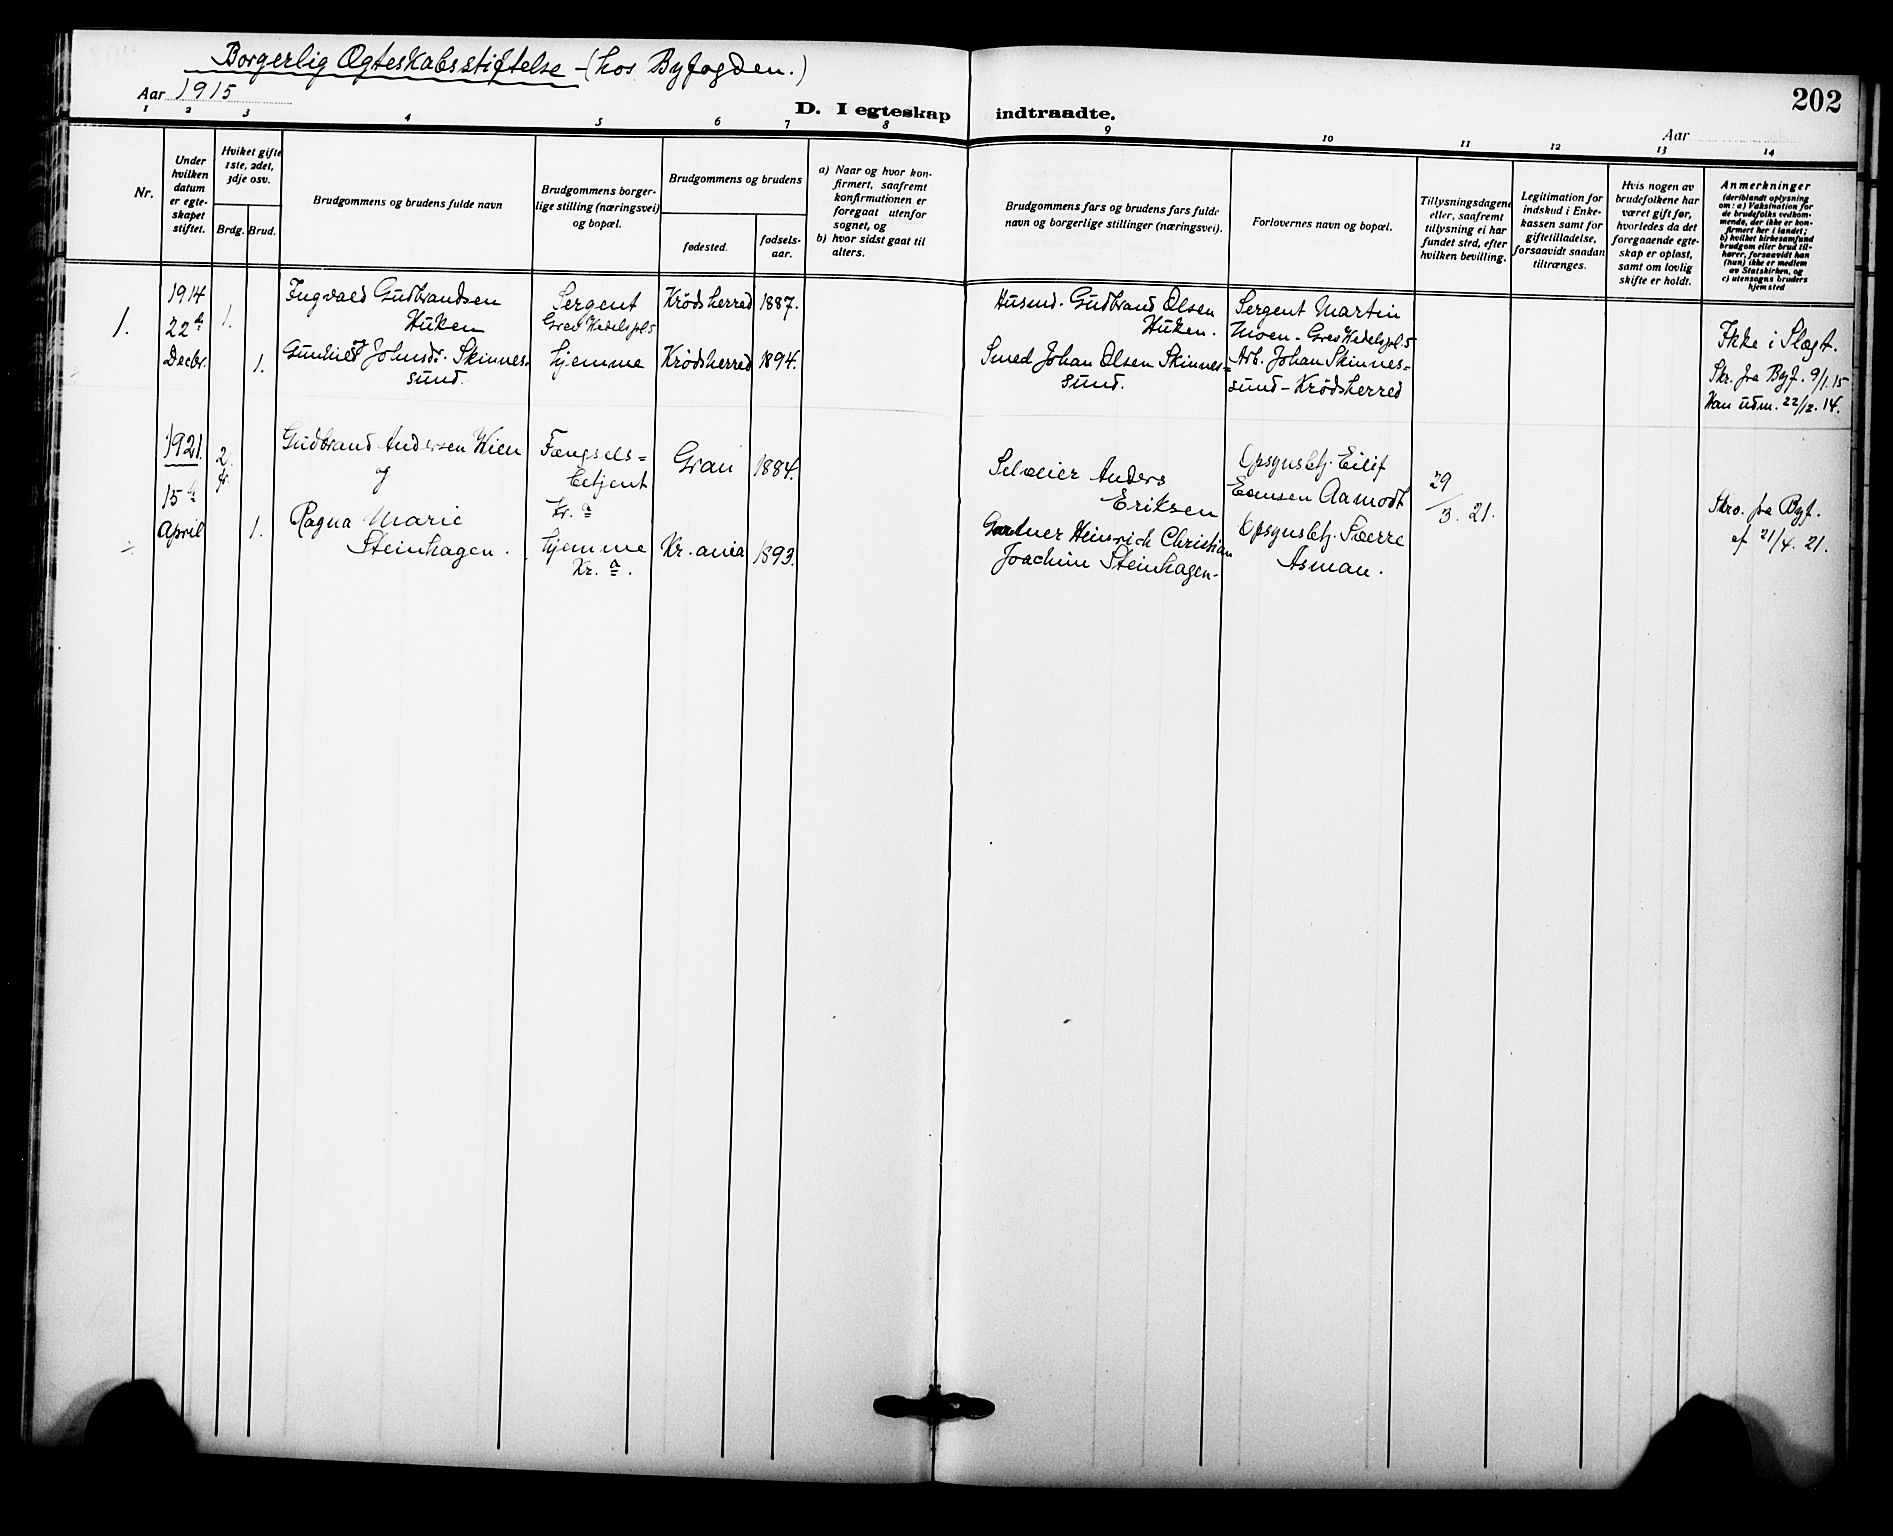 Borgerlig Ægteskabsstiftelse - (hos Byfogden.)
Aar 1915
202
D. I egteskap indtraadte.
Aar
1 2 3 4 5 6 7 8 9 10 11 12 13 14
Nr.
Under hvilken datum er egte-skapet stiftet.
Hvilket gifte 1ste, 2det, 3dje osv.
Brdg. Brud.
Brudgommens og brudens fulde navn
Brudgommens borger-lige stilling (næringsvei) og bopæl.
Brudgommens og brudens
fødested.
fødsels-aar.
a) Naar og hvor kon-firmert, saafremt konfirmationen er foregaat utenfor sognet, og
b) hvor sidst gaat til alters.
Brudgommens fars og brudens fars fulde navn og borgerlige stillinger (næringsvei).
Forlovernes navn og bopæl.
Tillysningsdagene eller, saafremt tillysning ei har fundet sted, efter hvilken bevilling.
Legitimation for indskud i Enke-kassen samt for giftetilladelse, forsaavidt saadan tiltrænges.
Hvis nogen av brudefolkene har været gift før, hvorledes da det foregaaende egte-skap er opløst, samt om lovlig skifte er holdt.
Anmerkninger (deriblandt oplysning om: a) Vaksination for de brudefolks vedkom-mende, der ikke er kon-firmert her i landet; b) hvilket kirkesamfund brudgom eller brud til-hører, forsaavidt han (hun) ikke er medlem av Statskirken, og c) utensogns bruders hjemsted
1.
1914
22de
Decbr.
1.
1.
Ingvald Gudbrandsen
Huken
Johnsdr. Skinnes-
sund.
Sergent
Grev Wedelspl 5
hjemme
Krødsherred 1887.
Krødsherred 1894.
Husmd. Gudbrand Olsen
Huken.
Smed Johan Olsen Skinnes=
sund.
Sergent Martin
Moen - Grev Wedelspl 5
Arb. Johan Skinnes=
sund - Krødsherred
Ikke i Slægt.
Skr. fra Byf. 9/1.15
Han udm. 22/12. 14.
1921.
15de
April
2
fr.
1.
Gudbrand Andersen Wien
og
Ragna Marie
Steinhagen.
Fængsels=
betjent
Kr.a
hjemme
Kr.a.
Gran 1884.
Kr.ania 1893.
Anders
Eriksen
Gartner Heinrich Christian
Joachim Steinhagen.
Opsynsbtj. Eilif
Aamodt
Opsynsbtj. Sverre
Asman.
29/3. 21.
Skr. fra Byf.
af 21/4. 21.